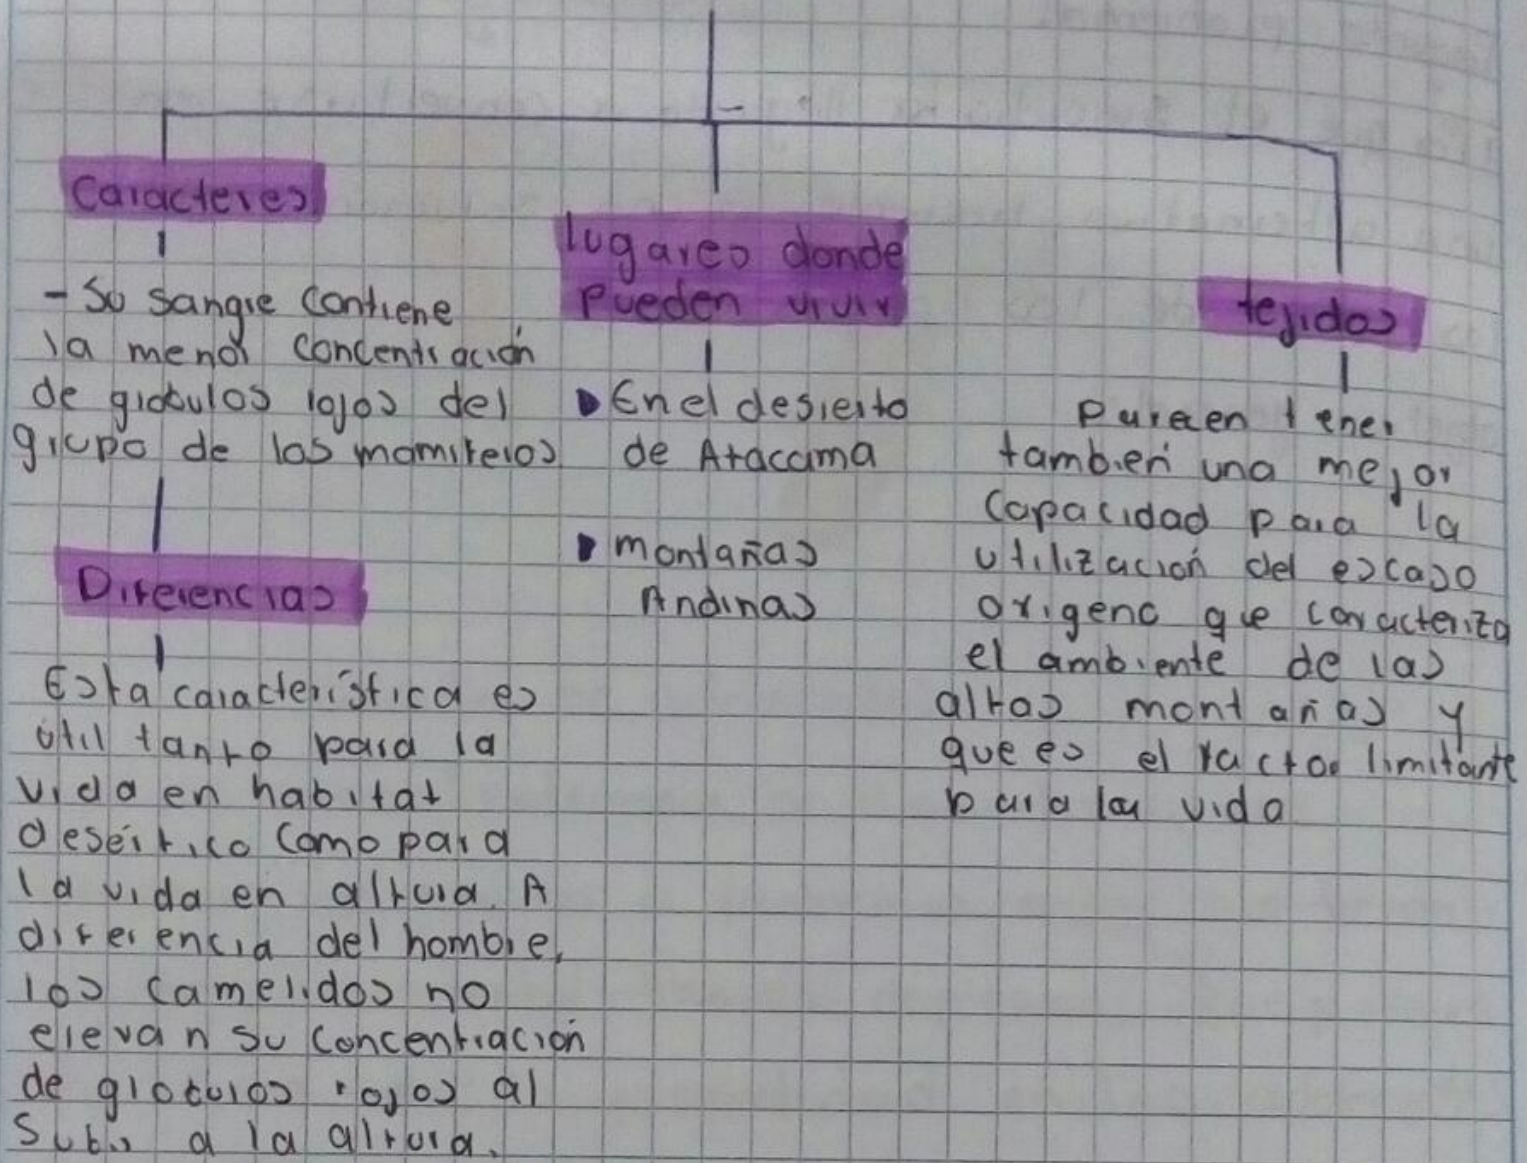 Caracteres
- Su sangre contiene
la menor concentración
de globulos rojos del
grupo de los mamiferos
Diferencias
Esta característica es
útil tanto para la
vida en habitat
desértico como para
la vida en altura. A
diferencia del hombre,
los camelidos no
elevan su concentración
de globulos rojos al
subir a la altura.
lugares donde
pueden vivir
En el desierto
de Atacama
montañas
Andinas
tejidos
Parecen tener
también una mejor
capacidad para la
utilización del escaso
oxigeno que caracteriza
el ambiente de las
altas montañas y
que es el factor limitante
para la vida